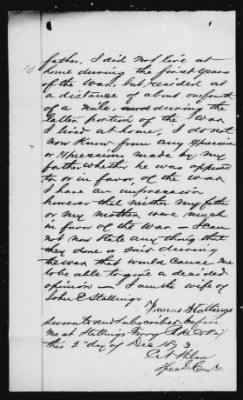 father. I did not live at
home during the first years
of the War, but resided at
a distance of about one fourth
of a mile, and during the
latter portion of the War
I lived at home, I do not
now know from any expression
or expressions made by my
father whether he was opposed
to or in favor of the War
I have an impression
however that neither my father
or my mother were much
in favor of the War - I can
not now state any thing that
they done or said during
the war that would cause me
to be able to give a decided
opinion - I am the wife of
John C Stallings
Stallings
Sworn to and subscribed before
me at Stallings Ferry
this 2 day of Dec 1873